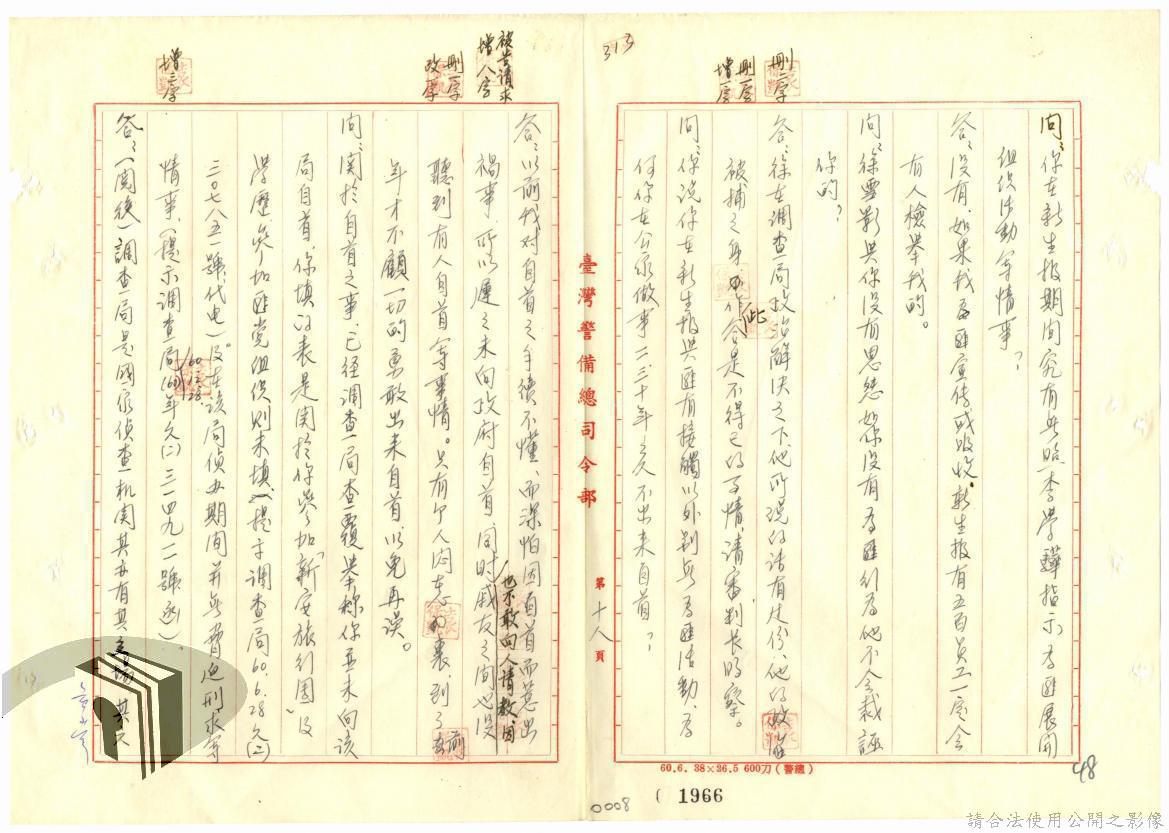 313
刪二字
刪一字
增一字
問:你在新生報期間究有無照李學驊指示為匪展開
組織活動等情事?
答:沒有,如果我為匪宣傳或吸收,新生報有五百員工一定會
有人檢舉我的。
問:徐雪影與你沒有思怨,如你沒有為匪行為他不會栽誣
你的?
答:徐在調查局政治解決之下他所說的話有
被捕之身,作此是不得已的事情,請審判長明察。
問:你說你在新生報與匪有接觸以外,別無為匪活動,為
何你在公家做事二、三十年之久不出來自首?
臺灣警備總司令部
第十八頁
被告請求
增八字
刪一字
改一字
增三字
答:以前我對自首之手續不懂,而深怕因自首而惹出
禍事,所以遲遲未向政府自首,同時戚友之間也沒
也不敢向人請教,因
聽到有人自首等事情。只有個人悶在心裏,到了前
年才不顧一切的勇敢出來自首,以免再誤。
問:關於自首之事,已經調查局查覆舉稱你並未向該
局自首,你填的表是關於你參加「新安旅行團」及
學歷,參加匪黨組織則未填,(提示調查局60.6.28.(二)
三〇七八五一號代電)及在該局偵办期間并無疲勞刑求等
情事。(提示調查局(60)年(二)三一四九一一號函)
60.12.28.
答:(閱後)調查局是國家偵查机関其办有其立場,其
60.6. 38×26.5 600刀(警總)
48
0008
( 1966
請合法使用公開之影像